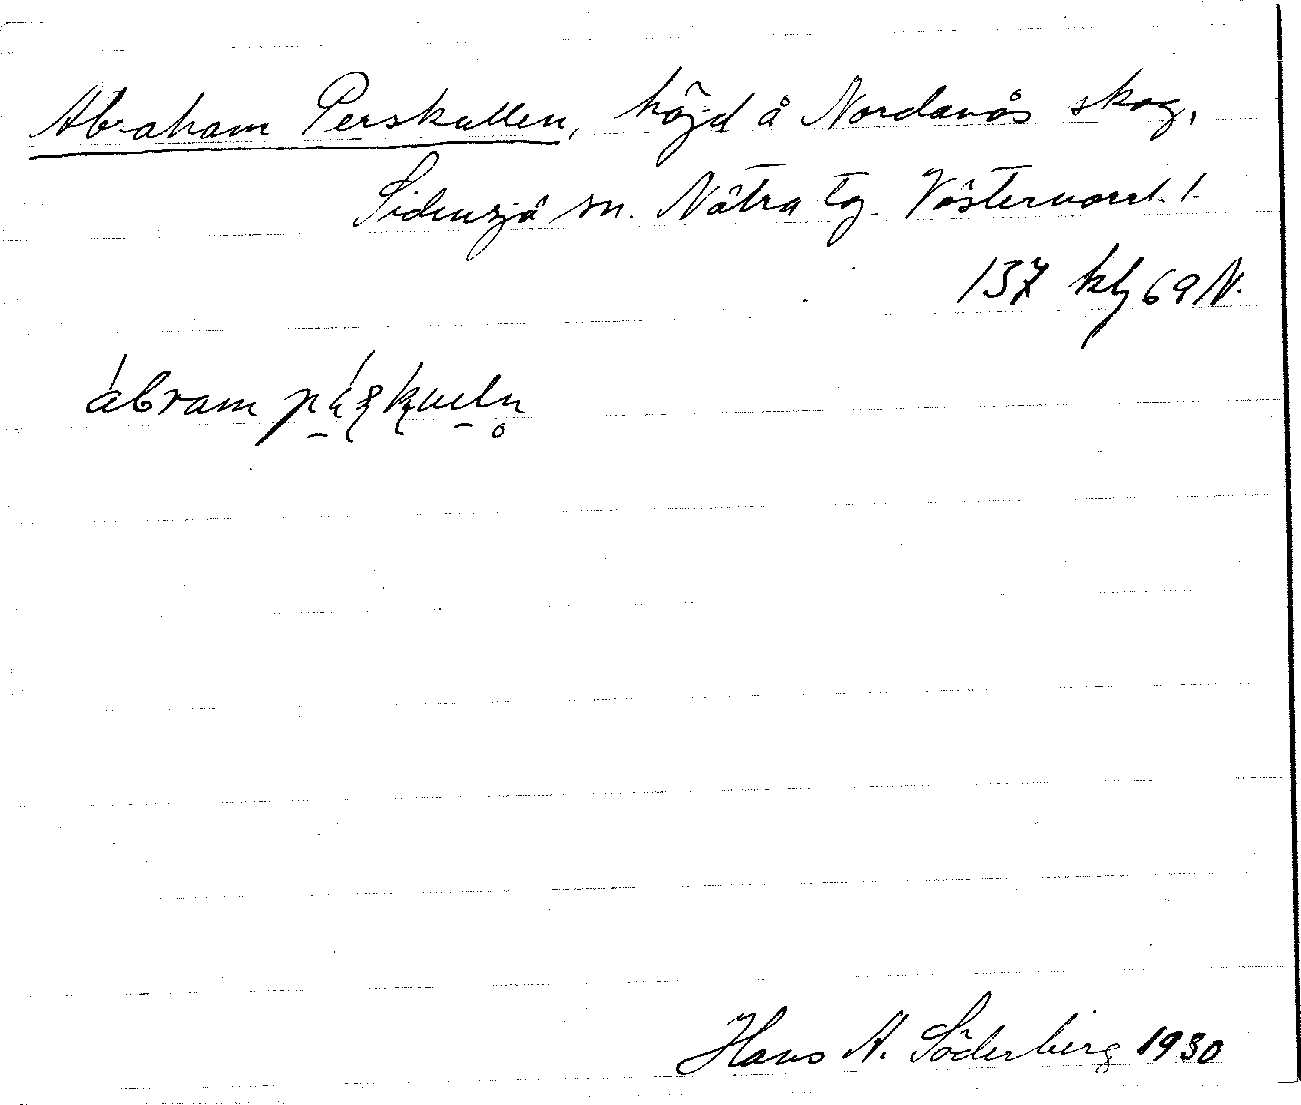 Abraham Perskullen, höjd å Nordanås skog,
Sidensjö sn. Nätra tg. Västernorrl. l.
137 kbj 69 N.
ábram
Hans A. Söderberg 1930